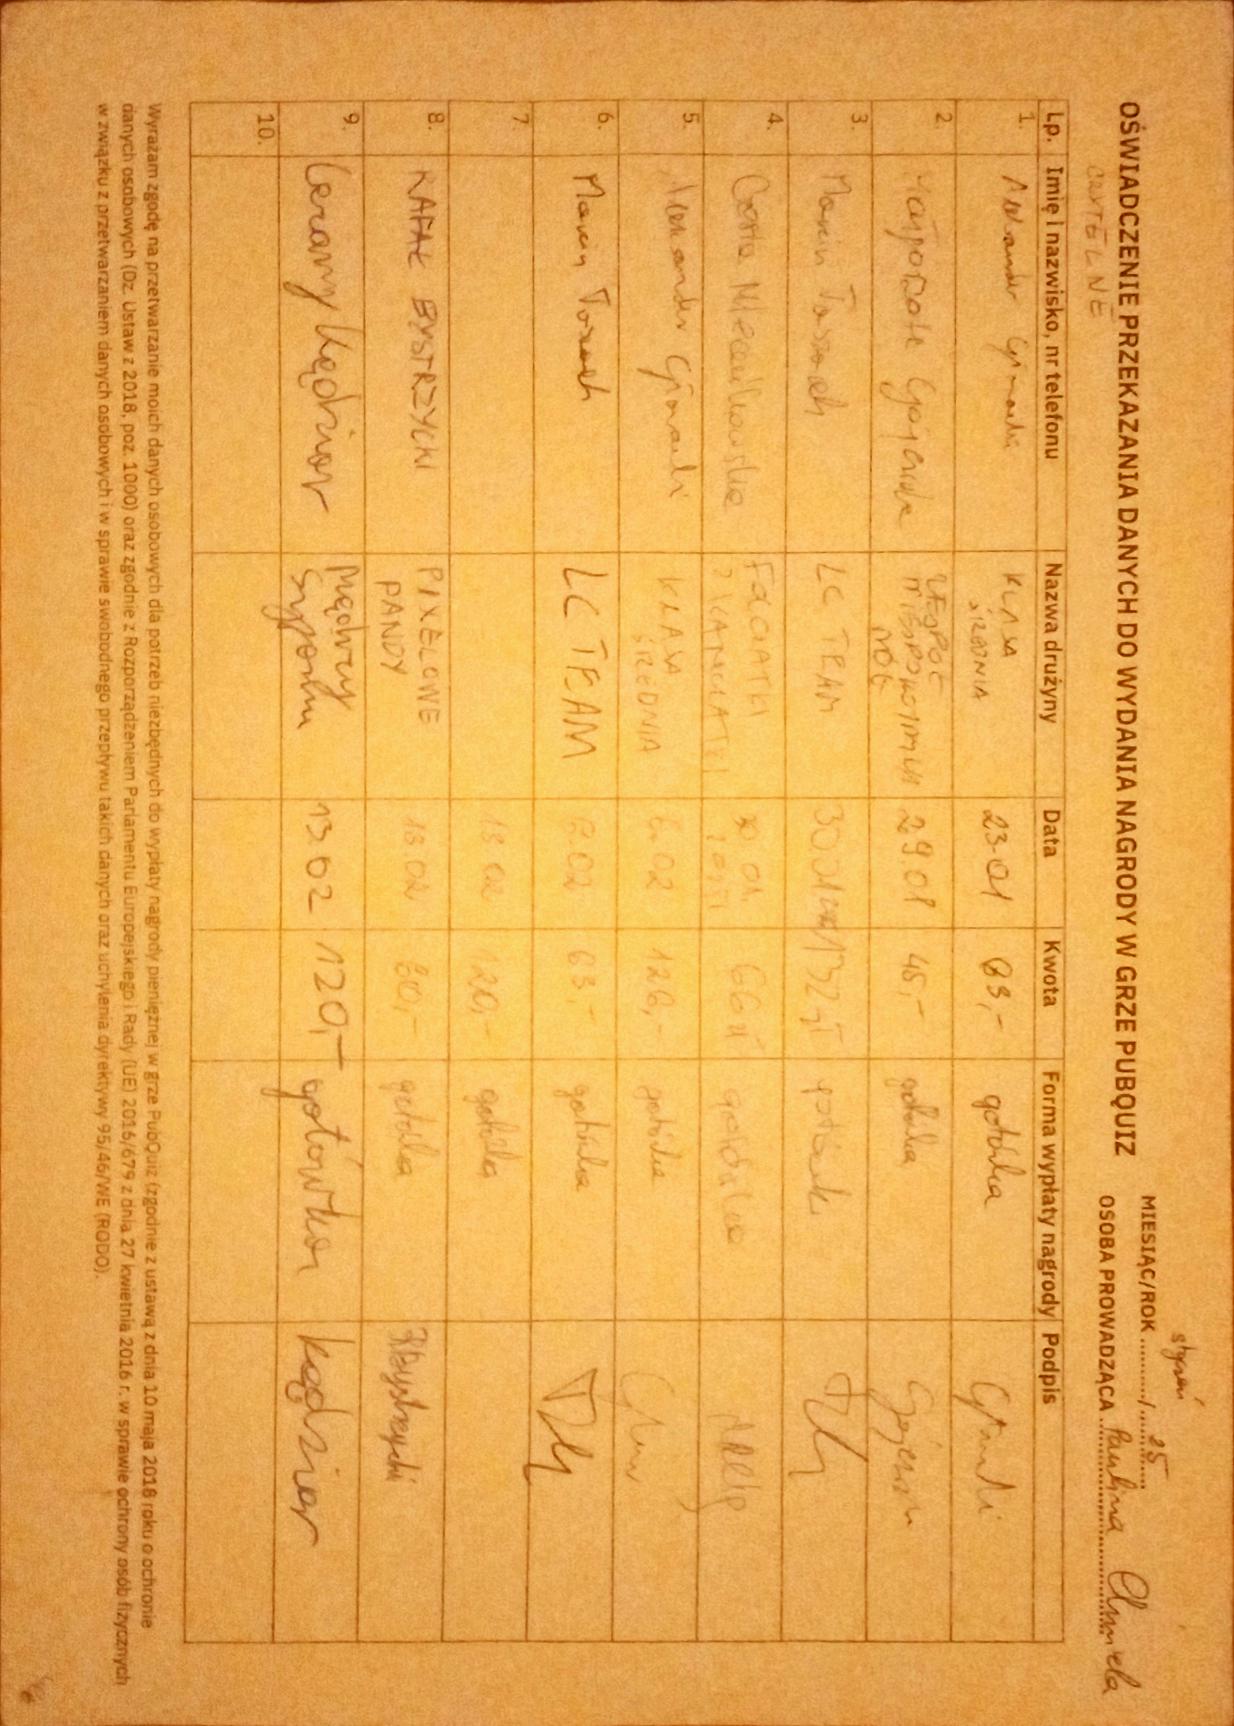 OŚWIADCZENIE PRZEKAZANIA DANYCH DO WYDANIA NAGRODY W GRZE PUBQUIZ
CZYTELNE
styczeń
MIESIĄC/ROK ........../..25....
OSOBA PROWADZĄCA Paulina
Lp. Imię i nazwisko, nr telefonu Nazwa drużyny Data Kwota Forma wypłaty nagrody Podpis
1. Aleksander KLASA ŚREDNIA 23.01 63,- gotówka
2. Małgorzata ZESPÓŁ NÓG 29.01 45,- gotówka
3. Marcin LC TEAM 30.01 132 zł gotówka
4. 30.01. 66 zł gotówka
5. Aleksander KLASA ŚREDNIA 6.02 126,- gotówka
6. Marcin LC TEAM 6.02 63,- gotówka
7. 13.02 120,- gotówka
8. RAFAŁ BYSTRZYCKI PIXELOWE PANDY 13.02 60,- gotówka RBystrzycki
9. Cezary Kędzior Mędrcy Syjonu 13.02 120,- gotówka Kędzior
10.
Wyrażam zgodę na przetwarzanie moich danych osobowych dla potrzeb niezbędnych do wypłaty nagrody pieniężnej w grze PubQuiz (zgodnie z ustawą z dnia 10 maja 2018 roku o ochronie
danych osobowych (Dz. Ustaw z 2018, poz. 1000) oraz zgodnie z Rozporządzeniem Parlamentu Europejskiego i Rady (UE) 2016/679 z dnia 27 kwietnia 2016 r. w sprawie ochrony osób fizycznych
w związku z przetwarzaniem danych osobowych i w sprawie swobodnego przepływu takich danych oraz uchylenia dyrektywy 95/46/WE (RODO).